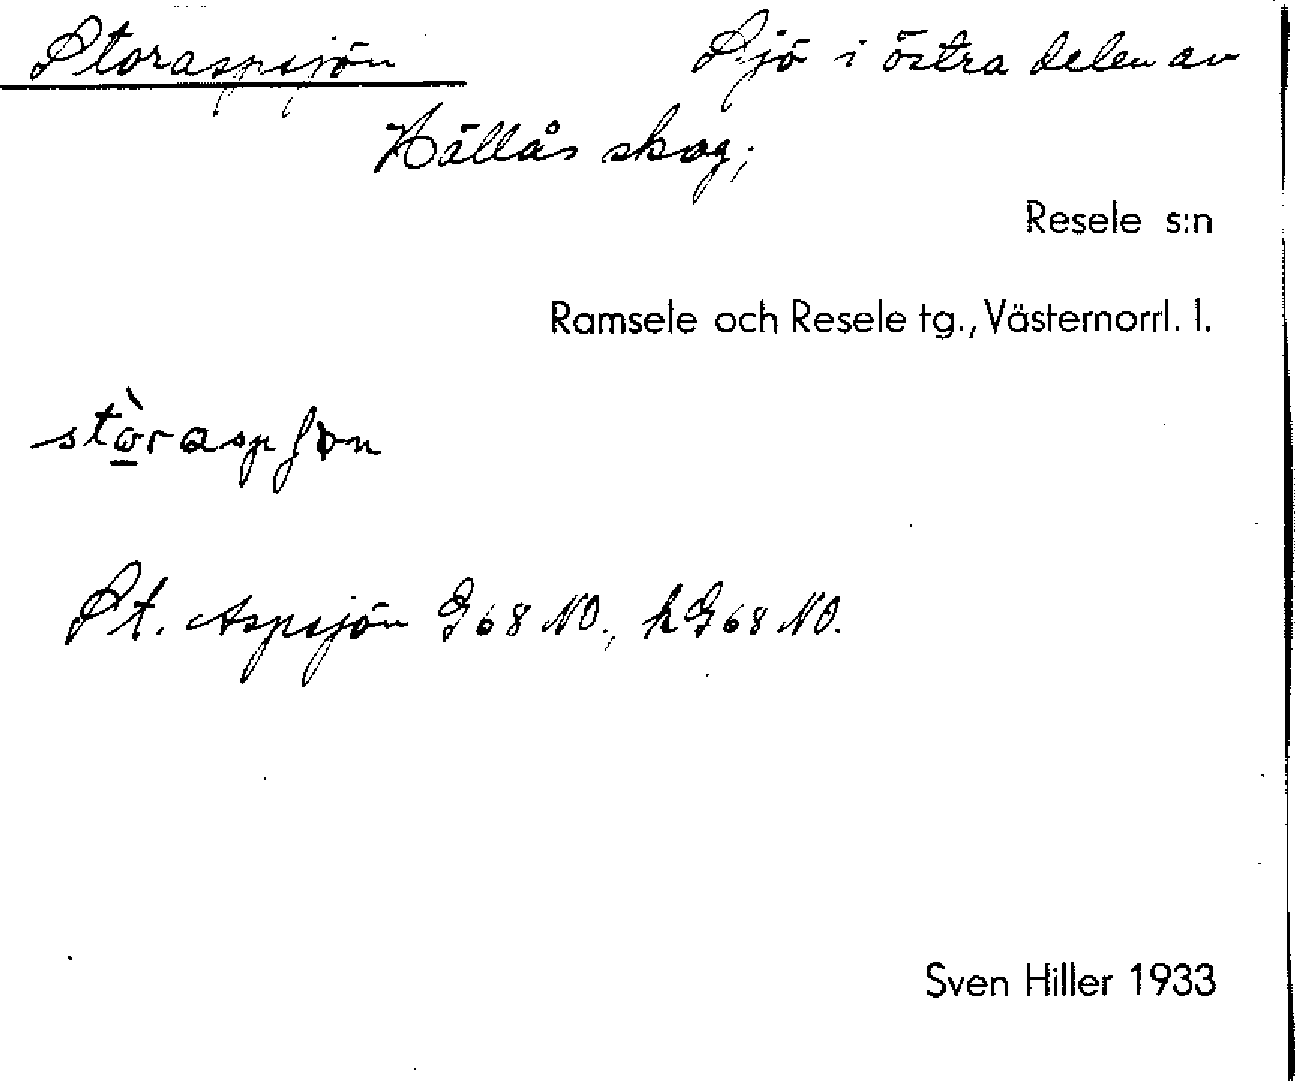 Storaspsjön Sjö i östra delen av
Hällås skog;
Resele s:n
Ramsele och Resele tg., Västernorrl. l.
stòraspʃɵn
St. Aspsjön G68 NO., hG68 NO.
Sven Hiller 1933